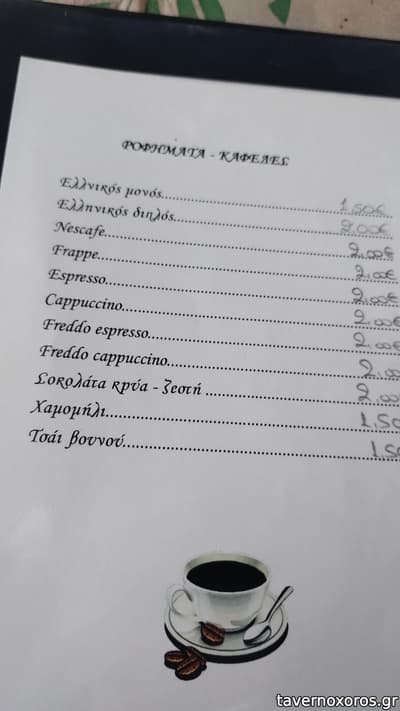 ΡΟΦΗΜΑΤΑ - ΚΑΦΕΔΕΣ
Ελλνικός μονός 1.50€
Ελληνικός διπλός 2.00€
Nescafe 2.00€
Frappe 2.00€
Espresso 2.00€
Cappuccino 2.00€
Freddo espresso 2.00€
Freddo cappuccino 2.00
Σοκολάτα κρύα - ζεστή 2.00
Χαμομήλι 1.50
Τσάι βουνού 1.50
tavernoxoros.gr